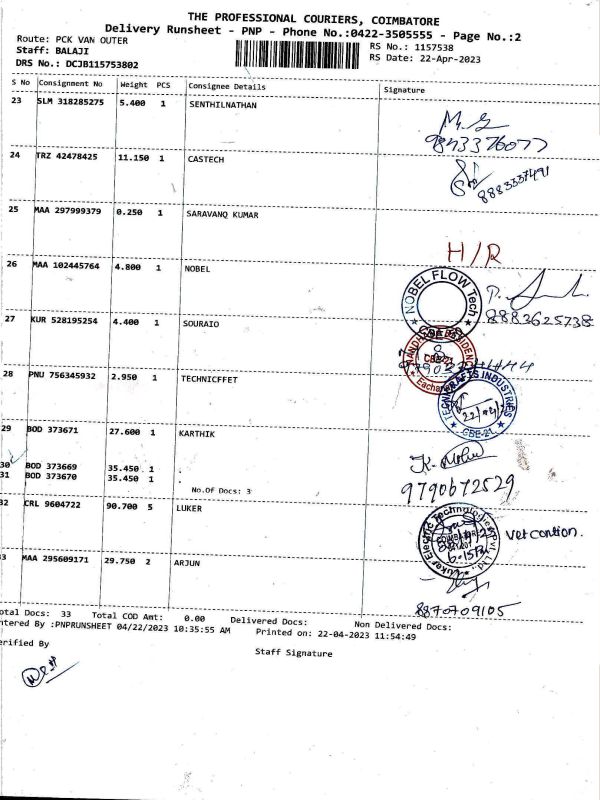 THE PROFESSIONAL COURIERS, COIMBATORE
Delivery Runsheet - PNP - Phone No.:0422-3505555 - Page No.:2
Route: PCK VAN OUTER
RS No.: 1157538
Staff: BALAJI
RS Date: 22-Apr-2023
DRS No.: DCJB115753802
S No Consignment No Weight PCS Consignee Details Signature
23 SLM 318285275 5.400 1 SENTHILNATHAN
9843376077
24 TRZ 42478425 11.150 1 CASTECH
8883337491
25 MAA 297999379 0.250 1 SARAVANQ KUMAR
H/R
26 MAA 102445764 4.800 1 NOBEL
NOBEL FLOW Tech
8883625738
27 KUR 528195254 4.400 1 SOURAIO
CBE-21
28 PNU 756345932 2.950 1 TECHNICFFET
INDUSTRIES
CBE-21
29 BOD 373671 27.600 1 KARTHIK
K. Mohan
30 BOD 373669 35.450 1 .
31 BOD 373670 35.450 1 .
No.Of Docs: 3
9790672529
32 CRL 9604722 90.700 5 LUKER
Luker Electric Technologies Pvt. Ltd.
6.15 PM
33 MAA 295609171 29.750 2 ARJUN
8870709105
otal Docs: 33 Total COD Amt: 0.00 Delivered Docs: Non Delivered Docs:
ntered By :PNPRUNSHEET 04/22/2023 10:35:55 AM Printed on: 22-04-2023 11:54:49
erified By
Staff Signature